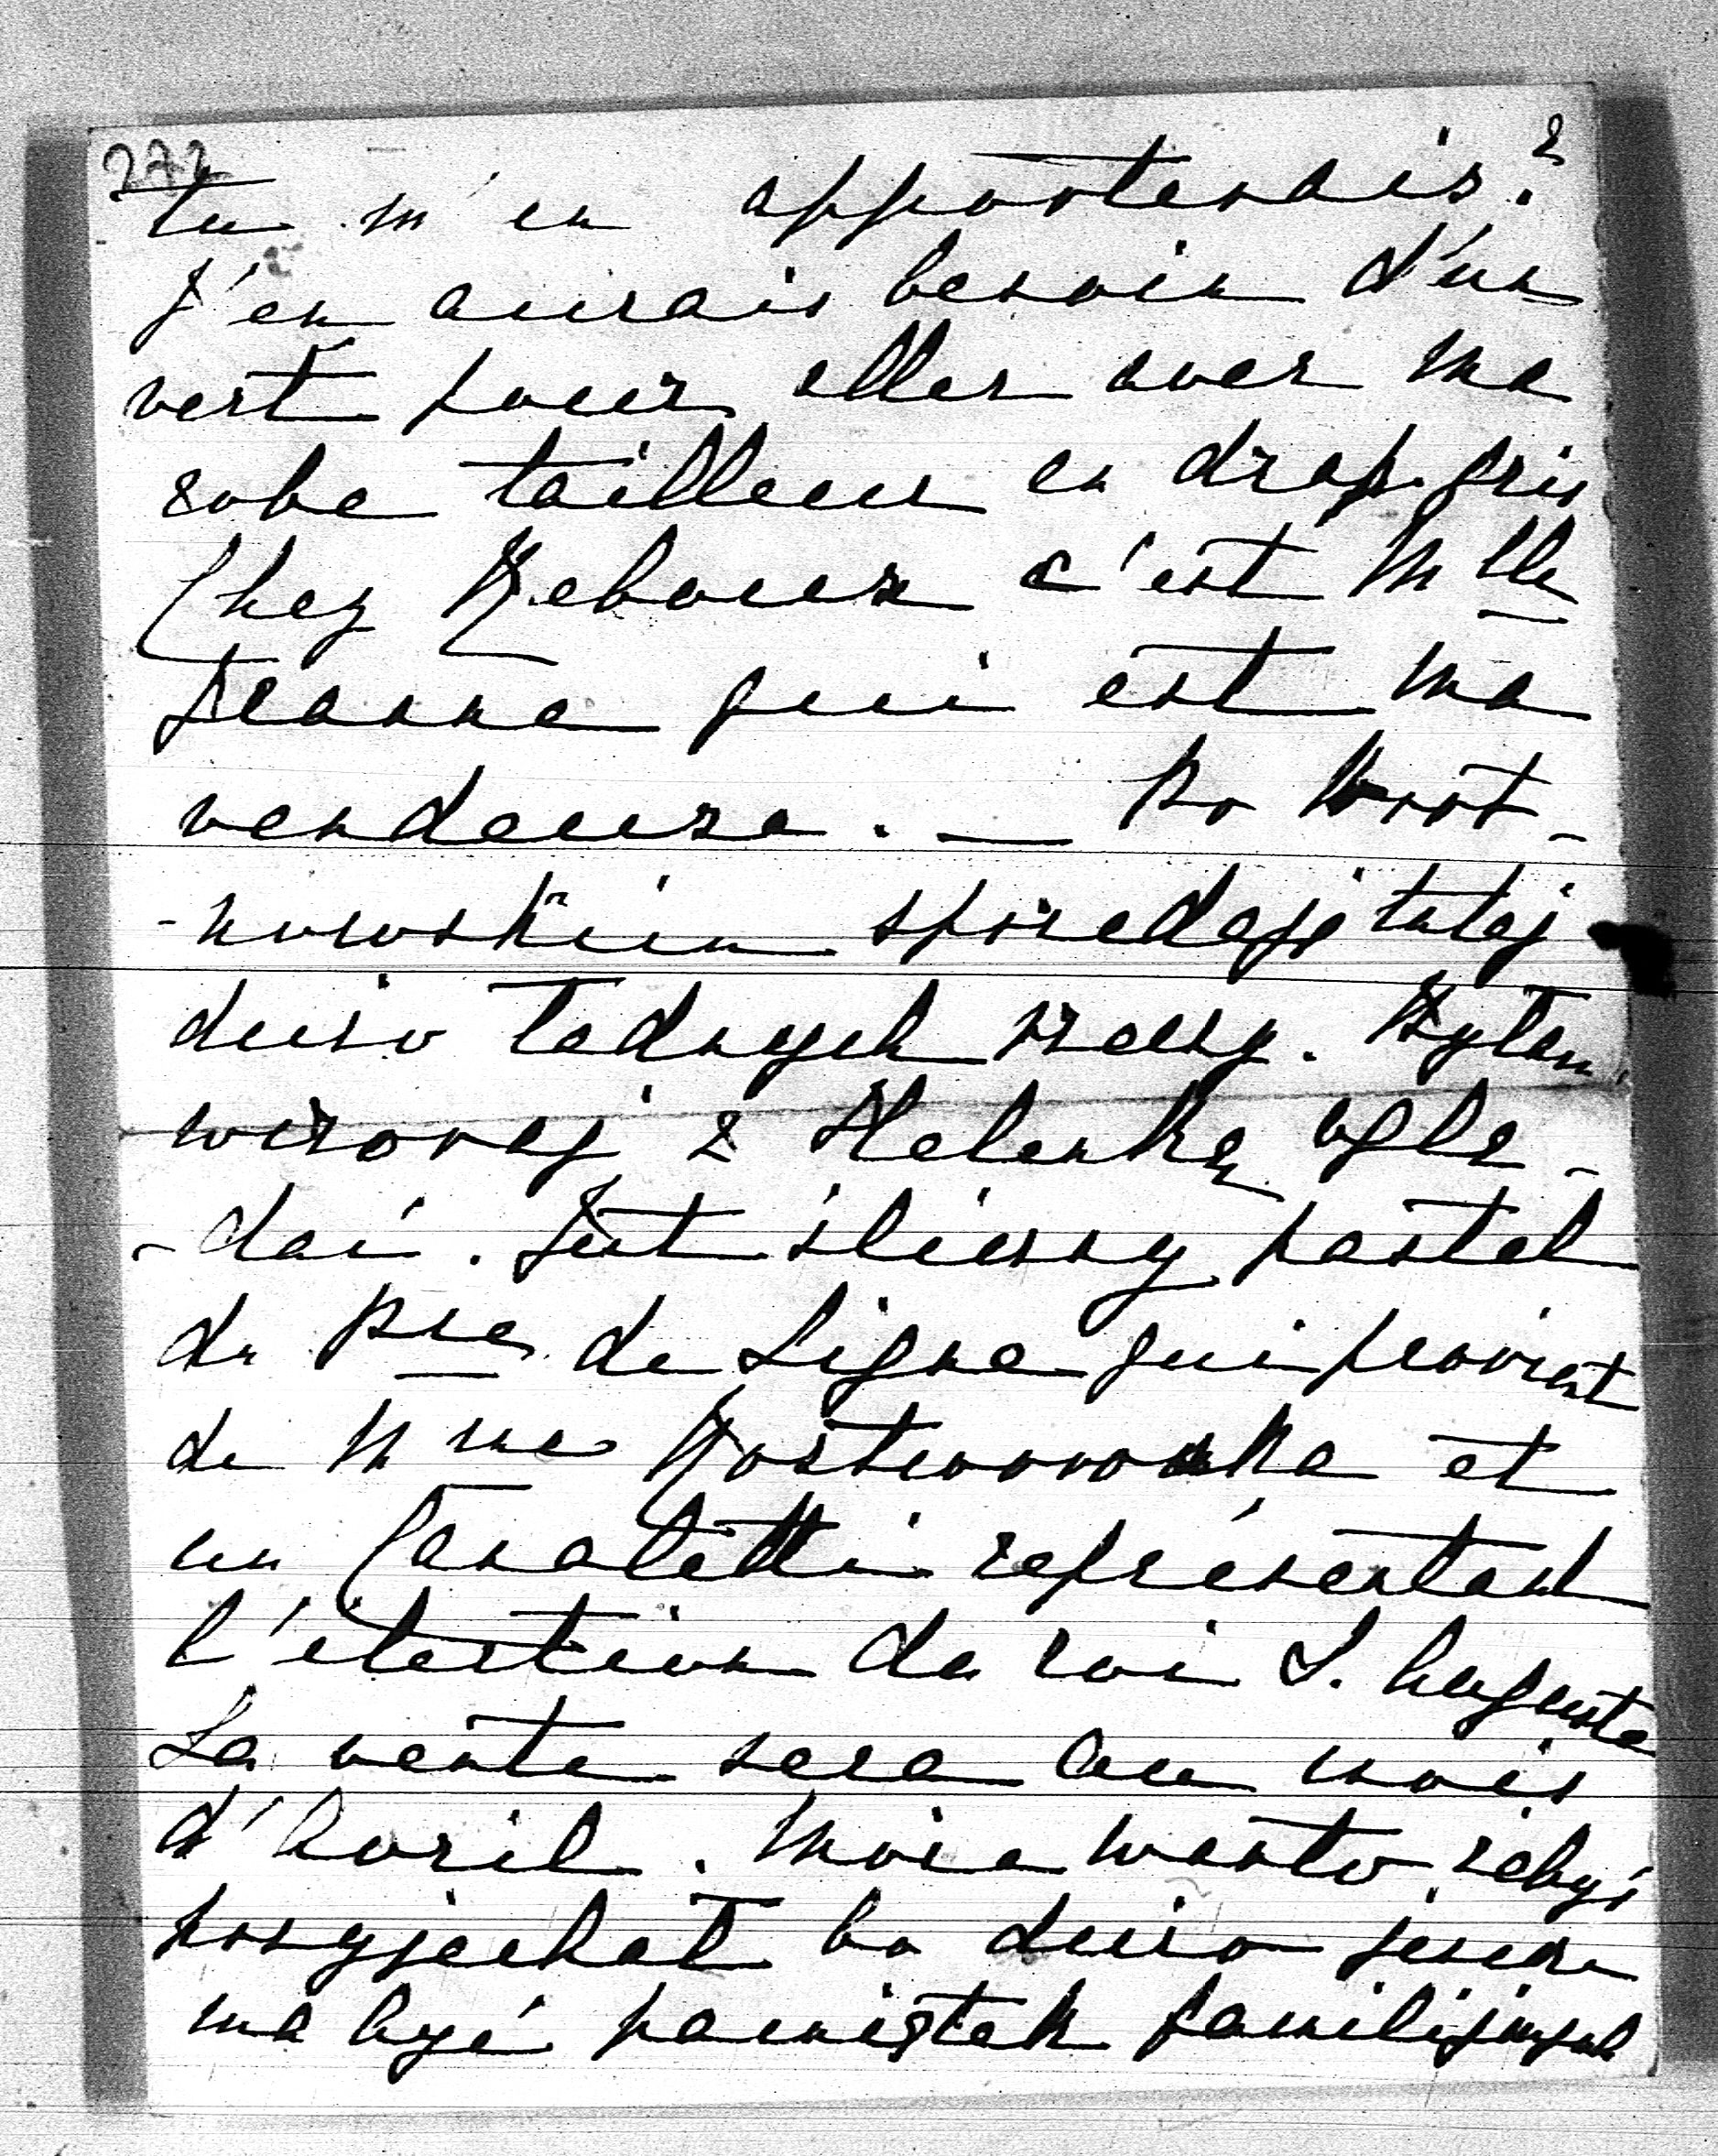 272
tu m'en apporterais?
J'en aurais besoin d'un
vert pour aller avec ma
robe tailleur en drap gris
Chez Reboux c'est Mlle
Jeanne qui est ma
vendeuse. — Po Wrot-
-nowskim sprzedają tutaj
dużo ładnych rzeczy. Byłam
wczoraj z Helenką oglą-
-dać. Jest śliczny pastel
du Pce de Ligne qui provient
de Mme Kossakowska et
un Canaletti représentant
l'élection du roi S. Auguste
La vente sera au mois
d'Avril. Może warto żebyś
przyjechał bo dużo jeszcze
ma być pamiątek familijnych